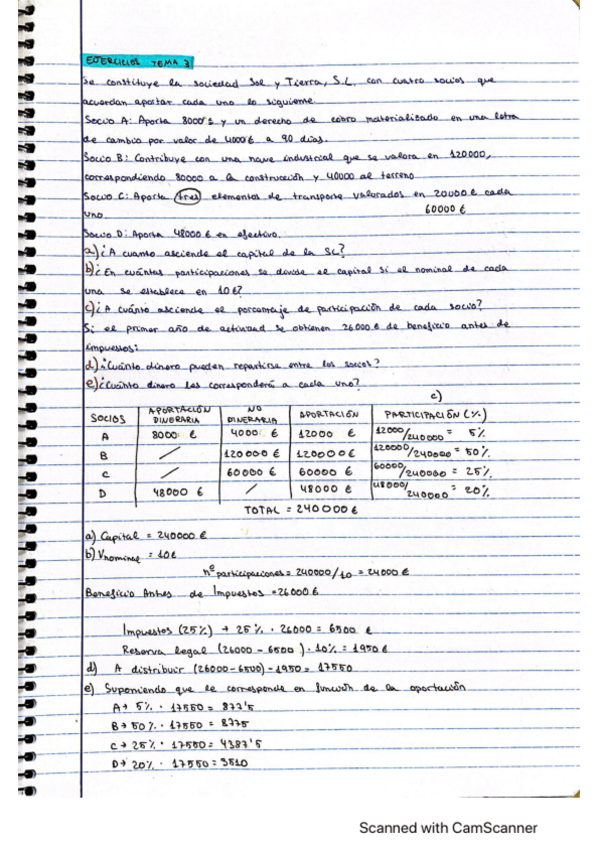 EJERCICIOS TEMA 3
Se constituye la sociedad Sol y Tierra, S.L. con cuatro socios que
acuerdan aportar cada uno lo siguiente
Socio A: Aporta 8000 € y un derecho de cobro materializado en una letra
de cambio por valor de 4000 € a 90 días.
Socio B: Contribuye con una nave industrial que se valora en 120000,
correspondiendo 80000 a la construcción y 40000 al terreno
Socio C: Aporta tres elementos de transporte valorados en 20000 € cada
uno 60000 €
Socio D: Aporta 48000 € en efectivo.
a) ¿A cuanto asciende el capital de la SL?
b) ¿En cuántas participaciones se divide el capital si el nominal de cada
una se establece en 10 €?
c) ¿A cuánto asciende el porcentaje de participación de cada socio?
Si el primer año de actividad se obtienen 26000 € de beneficio antes de
impuestos:
d) ¿Cuánto dinero pueden repartirse entre los socios?
e) ¿Cuánto dinero les corresponderá a cada uno?
c)
SOCIOS APORTACIÓN DINERARIA NO DINERARIA APORTACIÓN PARTICIPACIÓN (%)
A 8000 € 4000 € 12000 € 12000/240000 = 5%
B / 120000 € 120000 € 120000/240000 = 50%
C / 60000 € 60000 € 60000/240000 = 25%
D 48000 € / 48000 € 48000/240000 = 20%
TOTAL = 240000 €
a) Capital = 240000 €
b) Vnominal = 10 €
nº participaciones = 240000/10 = 24000 €
Beneficio Antes de Impuestos = 26000 €
Impuestos (25%) → 25% · 26000 = 6500 €
Reserva legal (26000 - 6500) · 10% = 1950 €
d) A distribuir (26000 - 6500) - 1950 = 17550
e) Suponiendo que le corresponde en función de la aportación
A → 5% · 17550 = 877'5
B → 50% · 17550 = 8775
C → 25% · 17550 = 4387'5
D → 20% · 17550 = 3510
Scanned with CamScanner